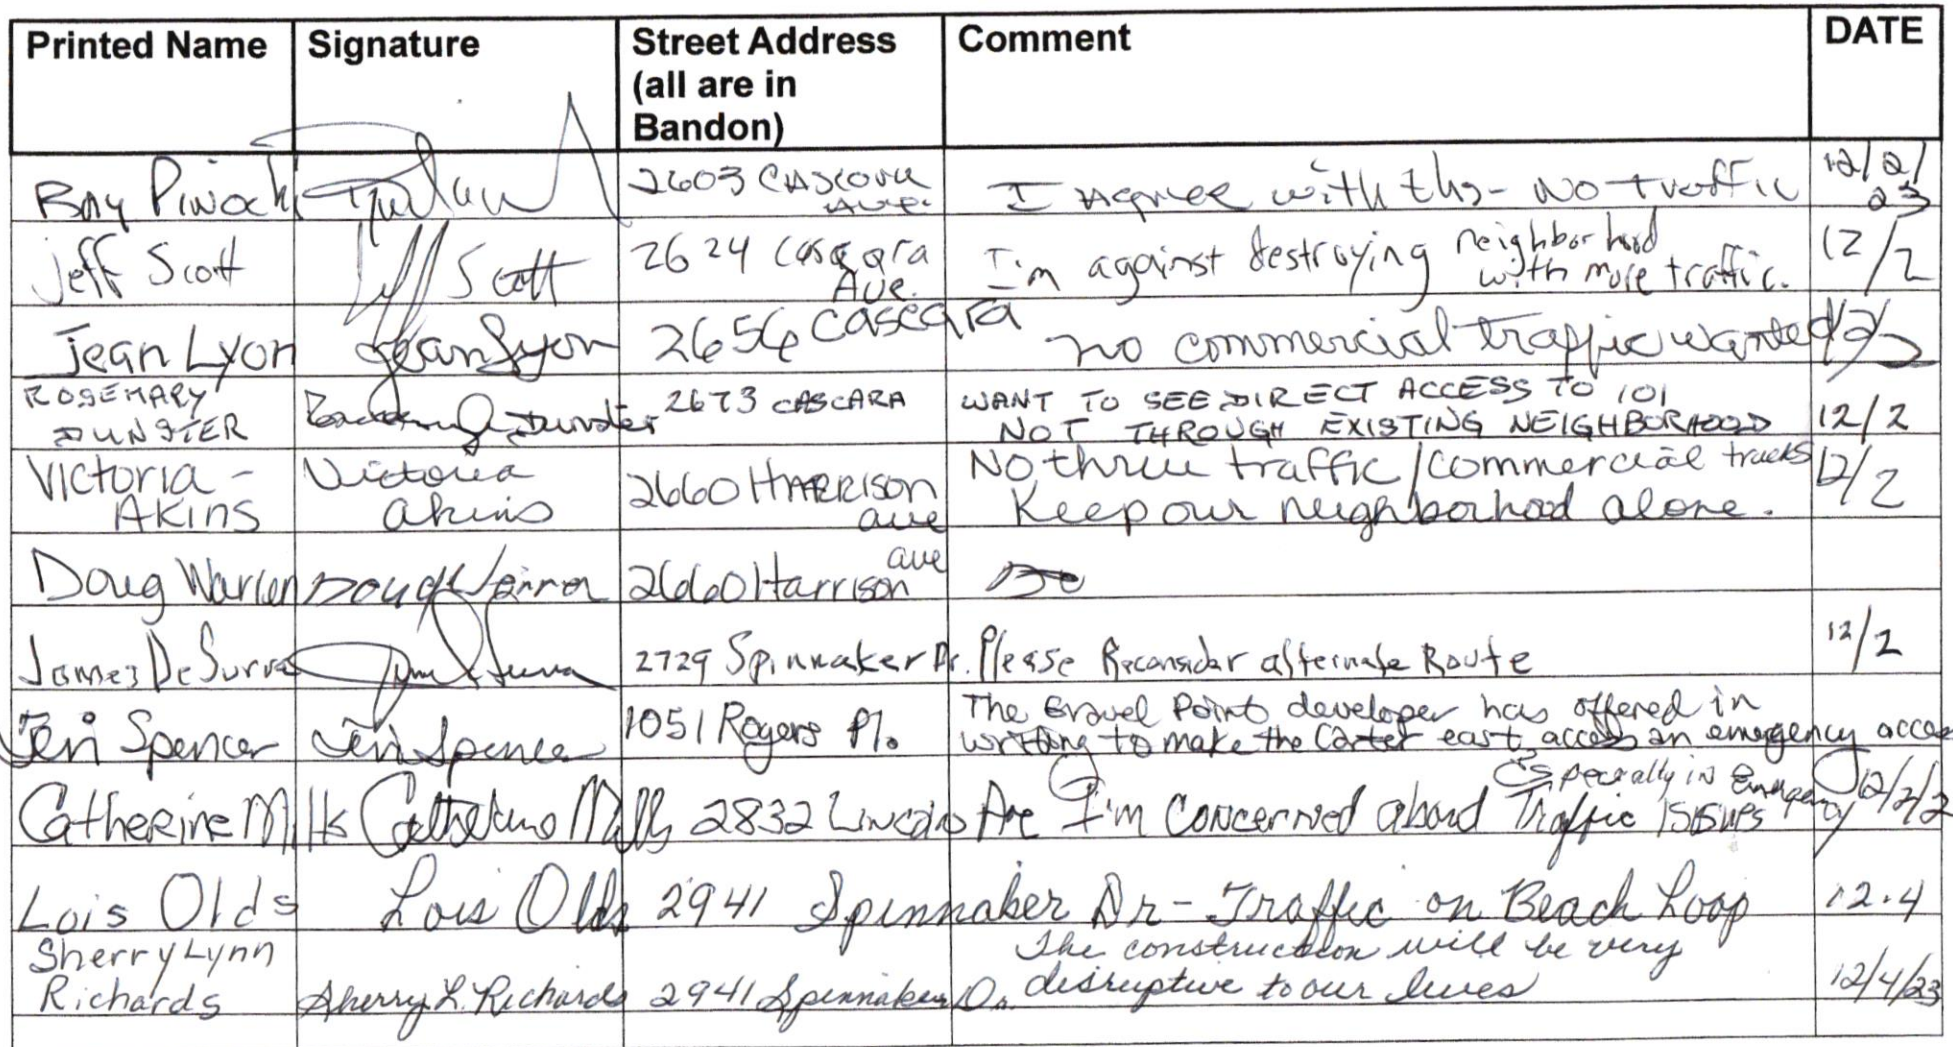 Printed Name Signature Street Address (all are in Bandon) Comment DATE
Ray 2603 Ave. I agree with this - No traffic 12/2/23
Jeff Scott Jeff Scott 2624 Cascara Ave. I'm against destroying neighborhood with more traffic. 12/2
Jean Lyon Jean Lyon 2656 Cascara no commercial traffic wanted 12/2
ROSEMARY DUNSTER Rosemary Dunster 2673 CASCARA WANT TO SEE DIRECT ACCESS TO 101 NOT THROUGH EXISTING NEIGHBORHOOD 12/2
VICTORIA - AKINS Victoria Akins 2660 HARRISON ave No thru traffic / commercial trucks Keep our neighborhood alone. 12/2
Doug Warren Doug 2660 Harrison ave
James DeSurra 2729 Spinnaker Dr. Please Reconsider alternate Route 12/2
Jeri Spencer Jeri Spencer 1051 Rogers Pl. The Gravel Point developer has offered in writing to make the Carter east access an emergency access
Catherine Mills Catherine Mills 2832 Lincoln Ave I'm Concerned about Traffic issues Especially in Emergency 12/2/2
Lois Olds Lois Olds 2941 Spinnaker Dr - Traffic on Beach Loop 12.4
Sherry Lynn Richards Sherry L. Richards 2941 Spinnaker Dr. The construction will be very disruptive to our lives 12/4/23